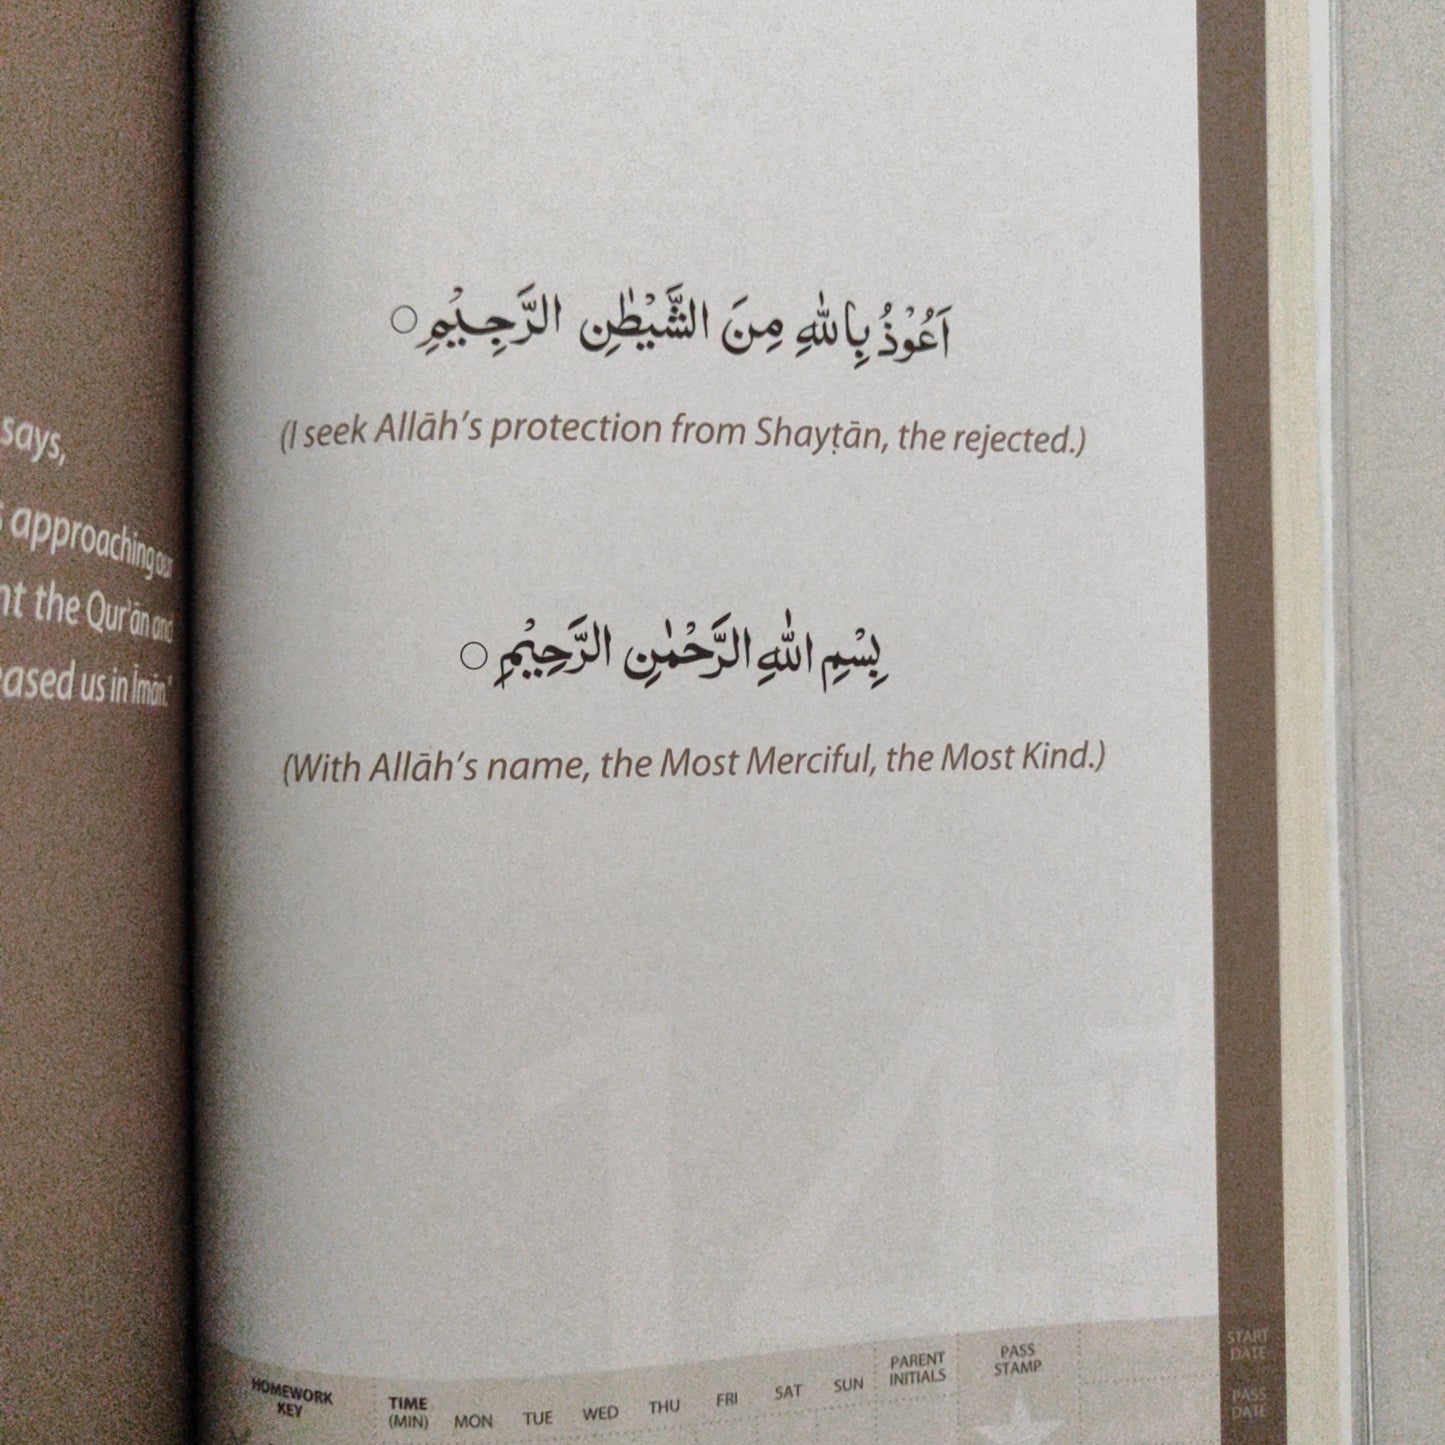 says,
approaching our
the Qur'ān and
us in Īmān.'
اَعُوْذُ بِاللّٰهِ مِنَ الشَّيْطٰنِ الرَّجِيْمِ ○
(I seek Allāh's protection from Shayṭān, the rejected.)
بِسْمِ اللّٰهِ الرَّحْمٰنِ الرَّحِيْمِ ○
(With Allāh's name, the Most Merciful, the Most Kind.)
14
HOMEWORK
KEY
TIME
(MIN)
MON TUE WED THU FRI SAT SUN
PARENT
INITIALS
PASS
STAMP
START
DATE
PASS
DATE